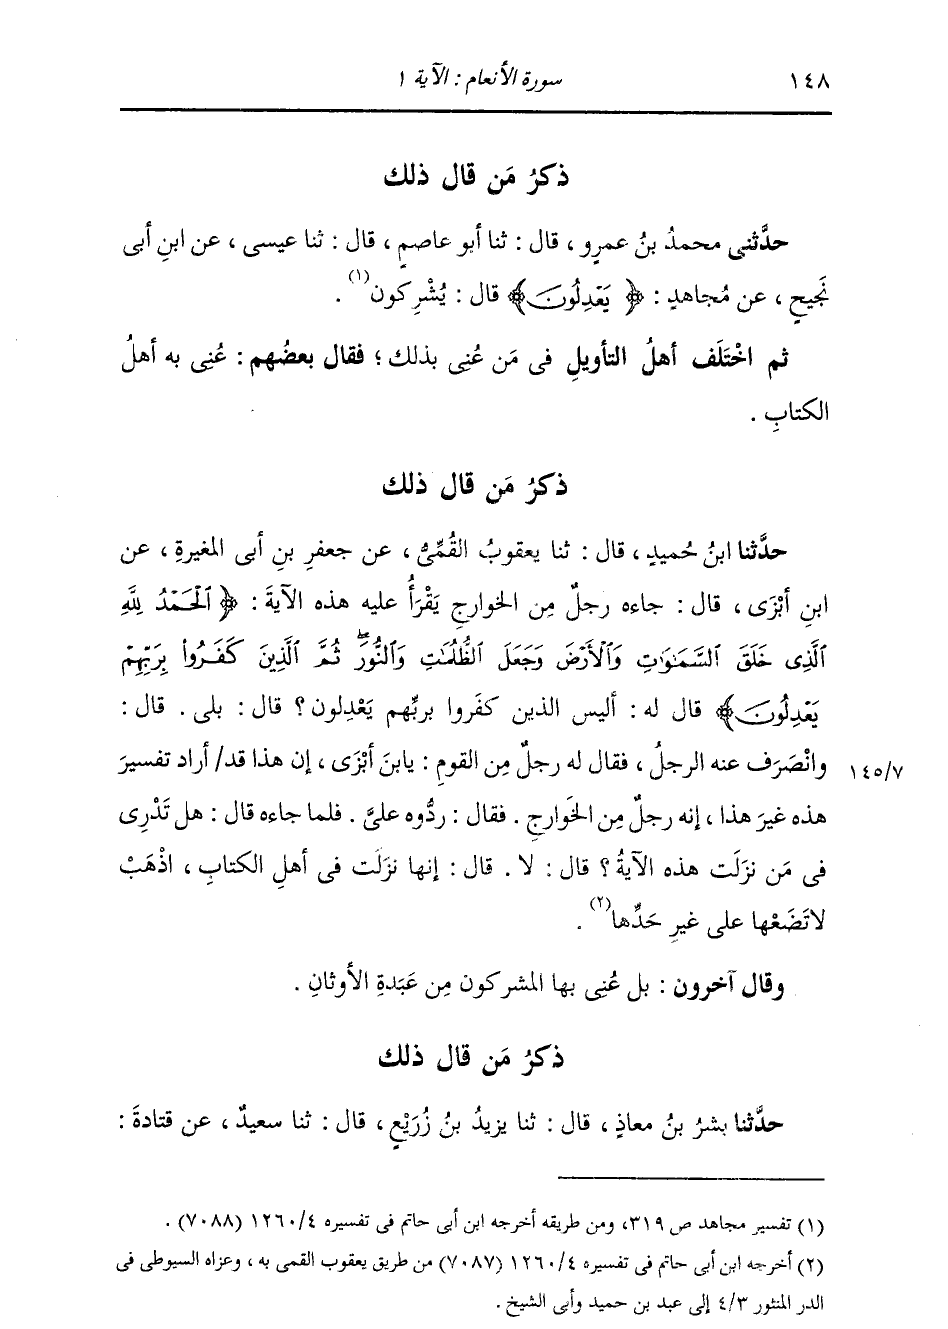 ١٤٨
سورة الأنعام : الآية ١
ذكرُ مَن قال ذلك
حدَّثنى محمدُ بنُ عمرٍو ، قال : ثنا أبو عاصمٍ ، قال : ثنا عيسى ، عن ابنِ أبى
نَجيحٍ ، عن مُجاهدٍ : ﴿ يَعْدِلُونَ ﴾ قال : يُشْرِكون(١) .
ثم اخْتَلَف أهلُ التأويلِ فى مَن عُنِى بذلك ؛ فقال بعضُهم : عُنِى به أهلُ
الكتابِ .
ذكرُ مَن قال ذلك
حدَّثنا ابنُ حُميدٍ ، قال : ثنا يعقوبُ القُمِّىُّ ، عن جعفرِ بنِ أبى المغيرةِ ، عن
ابنِ أبْزَى ، قال : جاءه رجلٌ مِن الخوارجِ يَقْرَأُ عليه هذه الآيةَ : ﴿ ٱلْحَمْدُ لِلَّهِ
ٱلَّذِى خَلَقَ ٱلسَّمَٰوَٰتِ وَٱلْأَرْضَ وَجَعَلَ ٱلظُّلُمَٰتِ وَٱلنُّورَۖ ثُمَّ ٱلَّذِينَ كَفَرُواْ بِرَبِّهِمْ
يَعْدِلُونَ ﴾ قال له : أليس الذين كفَروا بربِّهم يَعْدِلون ؟ قال : بلى . قال :
وانْصَرَف عنه الرجلُ ، فقال له رجلٌ مِن القومِ : يابنَ أبْزَى ، إن هذا قد/ أراد تفسيرَ
١٤٥/٧
هذه غيرَ هذا ، إنه رجلٌ مِن الخَوارجِ . فقال : ردُّوه علىَّ . فلما جاءه قال : هل تَدْرِى
فى مَن نزَلَت هذه الآيةُ ؟ قال : لا . قال : إنها نزَلَت فى أهلِ الكتابِ ، اذْهَبْ
لاتَضَعْها على غيرِ حَدِّها(٢) .
وقال آخرون : بل عُنِى بها المشركون مِن عَبَدةِ الأوثانِ .
ذكرُ مَن قال ذلك
حدَّثنا بشرُ بنُ معاذٍ ، قال : ثنا يزيدُ بنُ زُرَيْعٍ ، قال : ثنا سعيدٌ ، عن قتادةَ :
(١) تفسير مجاهد ص ٣١٩، ومن طريقه أخرجه ابن أبى حاتم فى تفسيره ١٢٦٠/٤ (٧٠٨٨) .
(٢) أخرجه ابن أبى حاتم فى تفسيره ١٢٦٠/٤ (٧٠٨٧) من طريق يعقوب القمى به ، وعزاه السيوطى فى
الدر المنثور ٤/٣ إلى عبد بن حميد وأبى الشيخ .